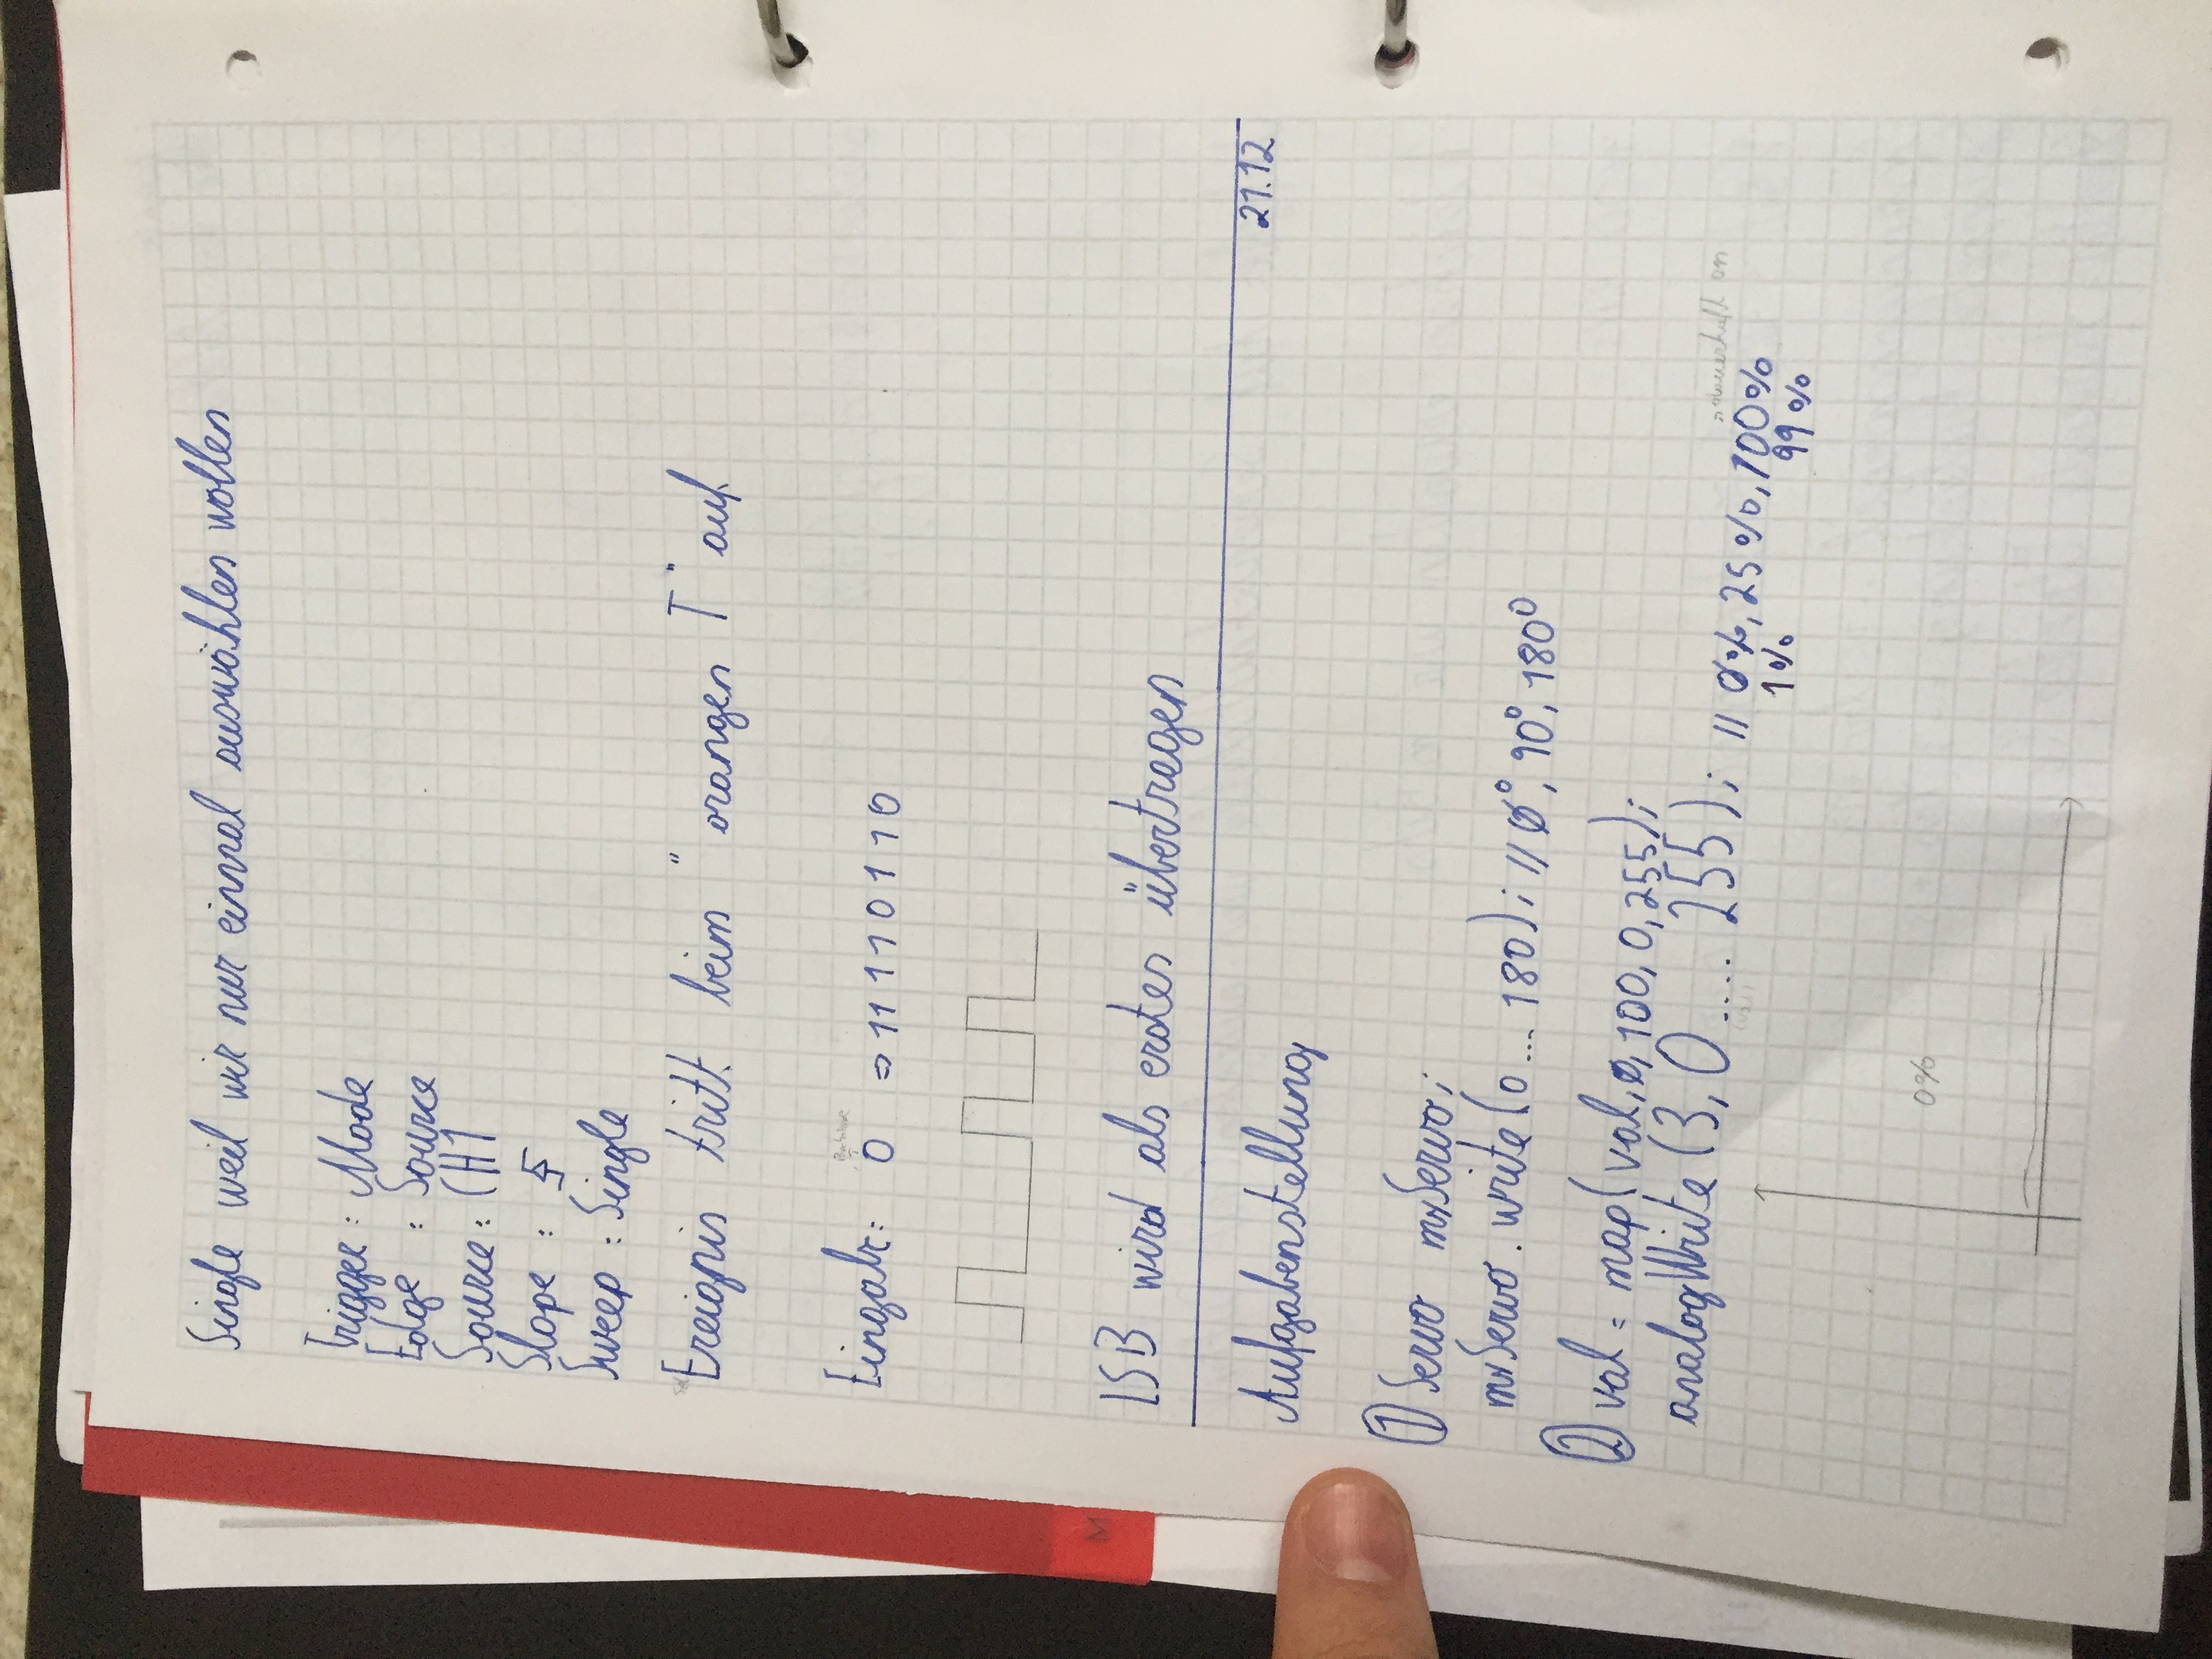 Single weil wir nur einmal auswählen wollen
Trigger: Mode
Edge : Source
Source: CH1
Slope :
Sweep : Single
Ereignis tritt beim "orangen T" auf
Eingabe: 0 ⇒ 11110110
LSB wird als erstes übertragen
21.12
Aufgabenstellung
① Servo myServo;
myServo.write(0...180); // 0°, 90°, 180°
② val = map(val, 0, 100, 0, 255);
analogWrite(3, 0....255); // 0%, 25%, 100%
1% 99%
0%